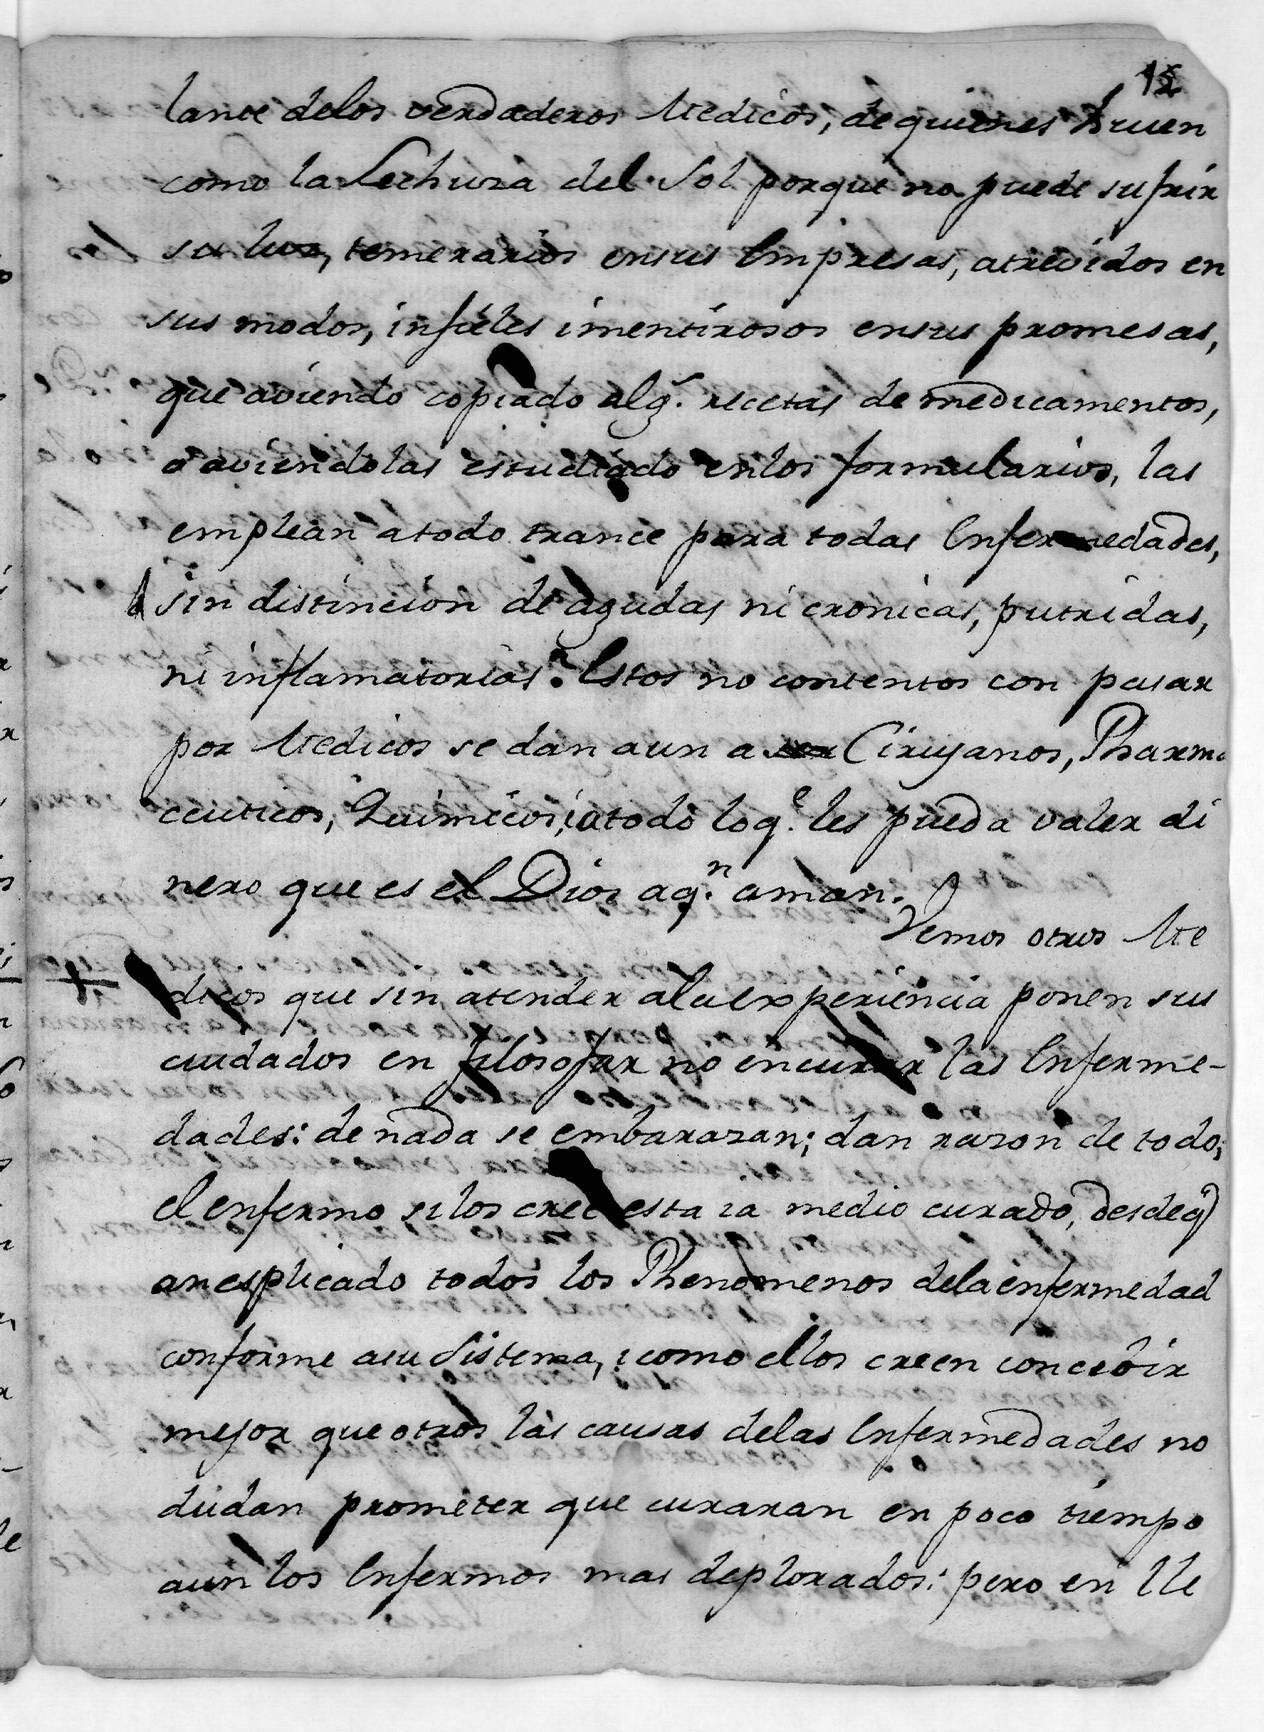 12
lante delos verdaderos Medicos, de quienes huien
como la Lechuza del Sol porque no puede sufrir
su luz, temerarios ensus Empresas, atrevidos en
sus modos, infieles i mentirosos ensus promesas,
que aviendo copiado alg.s recetas de medicamentos,
o aviendolas estudiado enlos formularios, las
emplean atodo trance para todas Enfermedades,
sin distincion de agudas ni cronicas, putridas,
ni inflamatorias. Estos no contentos con pasar
por Medicos se dan aun a ser Cirujanos, Pharma
ceuticos, Quimicos, i atodo loq.e les pueda valer di
nero que es el Dios aq.n aman.
Vemos otros Me
dicos que sin atender ala experiencia ponen sus
cuidados en filosofar no encurar las Enferme-
dades: de nada se embarazan; dan razon de todo;
el enfermo silos cree esta ia medio curado, desdeq
an esplicado todos los Phenomenos dela enfermedad
conforme asu Sistema, i como ellos creen concebir
mejor que otros las causas delas Enfermedades no
dudan prometer que curaran en poco tiempo
aun los Enfermos mas deplorados: pero en lle